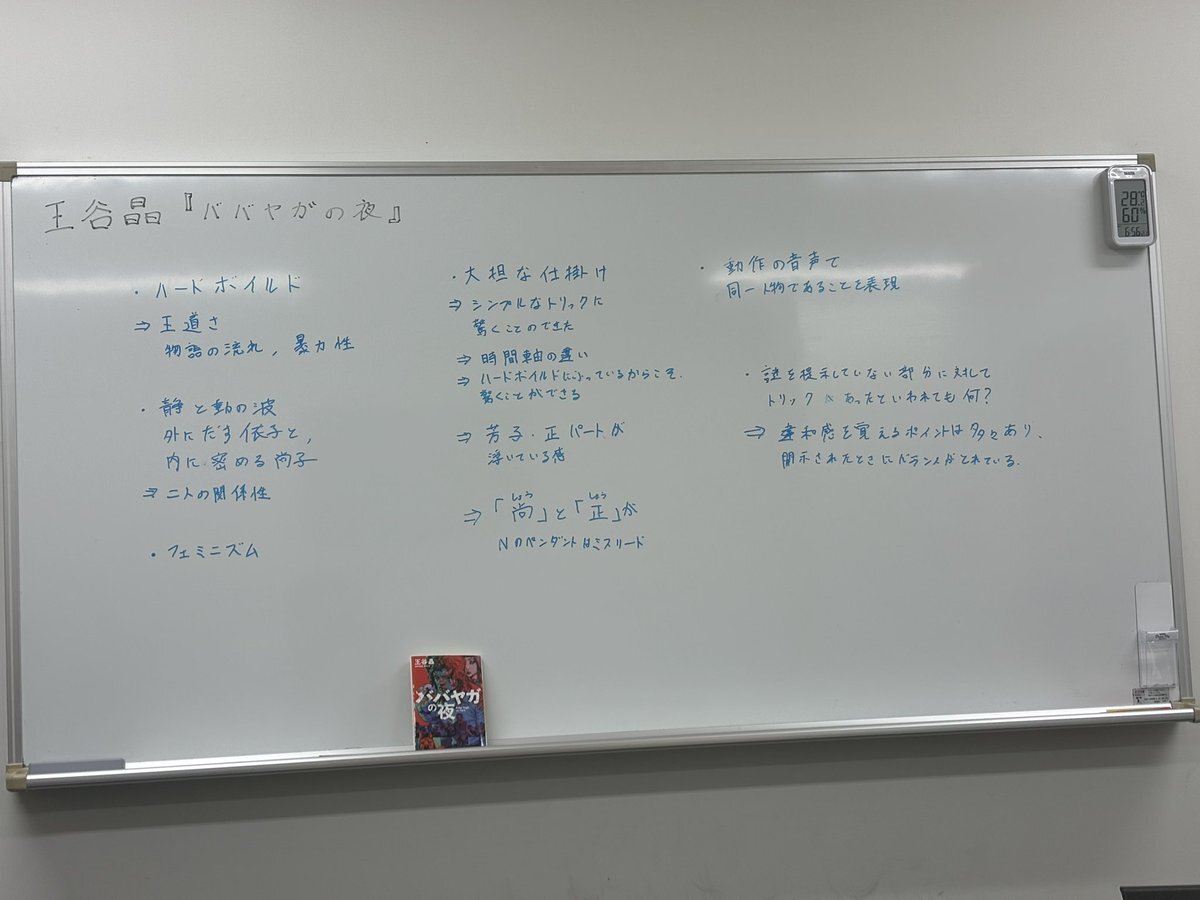 王谷晶『ババヤガの夜』
・ハードボイルド
⇒ 王道さ
物語の流れ, 暴力性
・静と動の波
外にだす依子と,
内に秘める尚子
⇒ 二人の関係性
・フェミニズム
・大胆な仕掛け
⇒ シンプルなトリックに
驚くことのできた
⇒ 時間軸の違い
⇒ ハードボイルドによっているからこそ,
驚くことができる
⇒ 芳子・正パートが
浮いている感
しょう しょう
⇒「尚」と「正」が
Nのペンダントはミスリード
・動作の音声で
同一人物であることを表現
・謎を提示していない部分に対して
トリックがあったといわれても何?
⇒ 違和感を覚えるポイントは多々あり,
開示されたときにバランスがとれている.
王谷晶
ババヤガの夜
28.2℃
60%